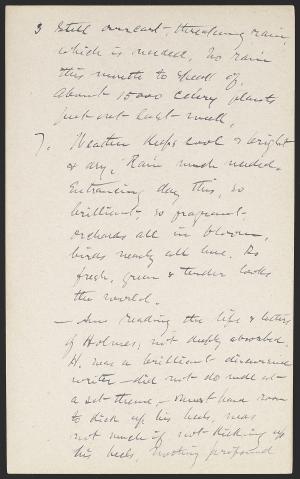 3 Still overcast, threatening rain,
which is needed. No rain
this month to speak of.
About 15000 celery plants
just out last week.
7. Weather keeps cool & bright
& dry; Rain much needed.
Entrancing day this, so
brilliant, so fragrant,
orchards all in bloom,
birds nearly all here. So
fresh, green & tender looks
the world.
— Am reading the life & letters
of Holmes, not deeply absorbed.
H. was a brilliant discursive
writer — did not do well at
a set theme, — must have room
to kick up his heels, was
not much if not kicking up
his heels, nothing profound